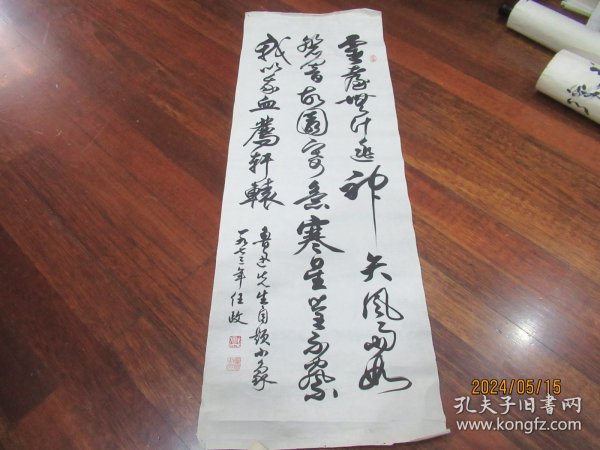 灵台无计逃神矢风雨如
磐暗故园寄意寒星荃不察
我以我血荐轩辕
鲁迅先生自题小象
一九七三年任政
2024/05/15
孔夫子旧书网
www.kongfz.com